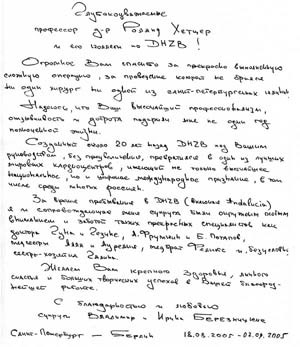 Глубокоуважаемые
профессор д-р Роланд Хетцер
и его коллеги по DHZB!
Огромное Вам спасибо за прекрасно выполненную
сложную операцию, за проведение которой не брался
ни один хирург ни одной из санкт-петербургских клиник
Надеюсь, что Ваш высочайший профессионализм,
отзывчивость и доброта подарили мне не один год
полноценной жизни.
Созданный около 20 лет назад DHZB под Вашим
руководством без преувеличения, превратился в один из лучших
мировых кардиоцентров, имеющий не только высочайшее
национальное, но и широкое международное признание, в том
числе среди многих россиян.
За время пребывания в DHZB (включая
я и сопровождающая меня супруга были окружены особым
вниманием и заботой таких прекрасных специалистов как
доктора и А. Фрумкин и Е. Потапов,
медсестры Алла и медбрат Феликс и, безусловно,
Галина.
Желаем Вам крепкого здоровья, личного
счастья и больших творческих успехов в Вашей благород-
нейшей работе.
С благодарностью и любовью
супруги Владимир и Ирина
Санкт-Петербург — Берлин 18.08.2005 - 07.09.2005